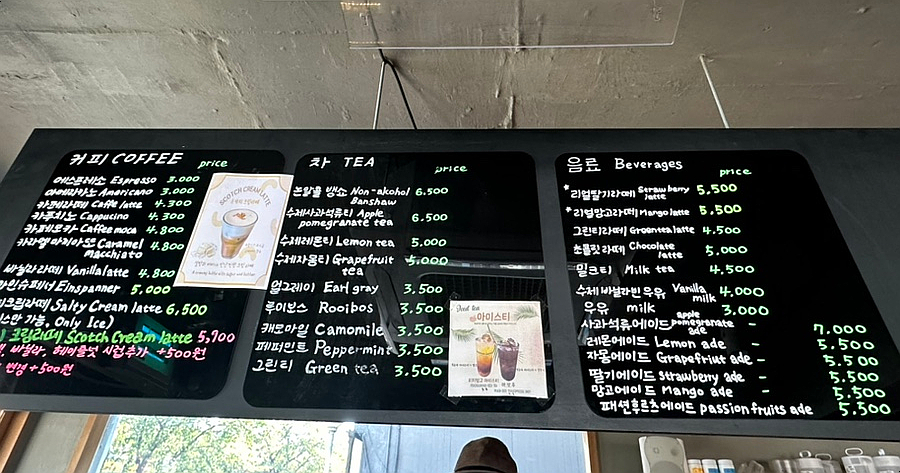 커피 COFFEE price
에스프레소 Espresso 3.000
아메리카노 Americano 3.000
카페라떼 Caffe latte 4.300
카푸치노 Cappucino 4.300
카페모카 Caffee moca 4.800
카라멜마끼아또 Caramel macchiato 4.800
바닐라라떼 Vanilla latte 4.800
인슈페너 Einspanner 5,000
크림라떼 Salty Cream latte 6,500
가능, Only Ice)
크림라떼 Scotch Cream latte 5,900
바닐라, 헤이즐넛 시럽추가 +500원
변경 +500원
SCOTCH CREAM LATTE
차 TEA
price
논알콜 뱅쇼 Non-akohol Banshaw 6.500
수제사과석류티 Apple pomegranate tea 6.500
수제레몬티 Lemon tea 5.000
수제자몽티 Grapefruit tea 5.000
얼그레이 Earl gray 3.500
루이보스 Rooibos 3.500
캐모마일 Camomile 3.500
페퍼민트 Peppermint 3.500
그린티 Green tea 3.500
아이스티
음료 Beverages
price
*리얼딸기라떼 Strawberry latte 5,500
*리얼망고라떼 Mango latte 5,500
그린티라떼 Greentea latte 4.500
초콜릿라떼 Chocolate latte 5,000
밀크티 Milk tea 4,500
수제 바닐라빈우유 Vanilla milk 4,000
우유 milk 3,000
사과석류에이드 apple pomegranate ade - 7.000
레몬에이드 Lemon ade - 5.500
자몽에이드 Grapefriut ade - 5.500
딸기에이드 strawberry ade - 5.500
망고에이드 Mango ade - 5.500
패션후르츠에이드 passion fruits ade 5.500